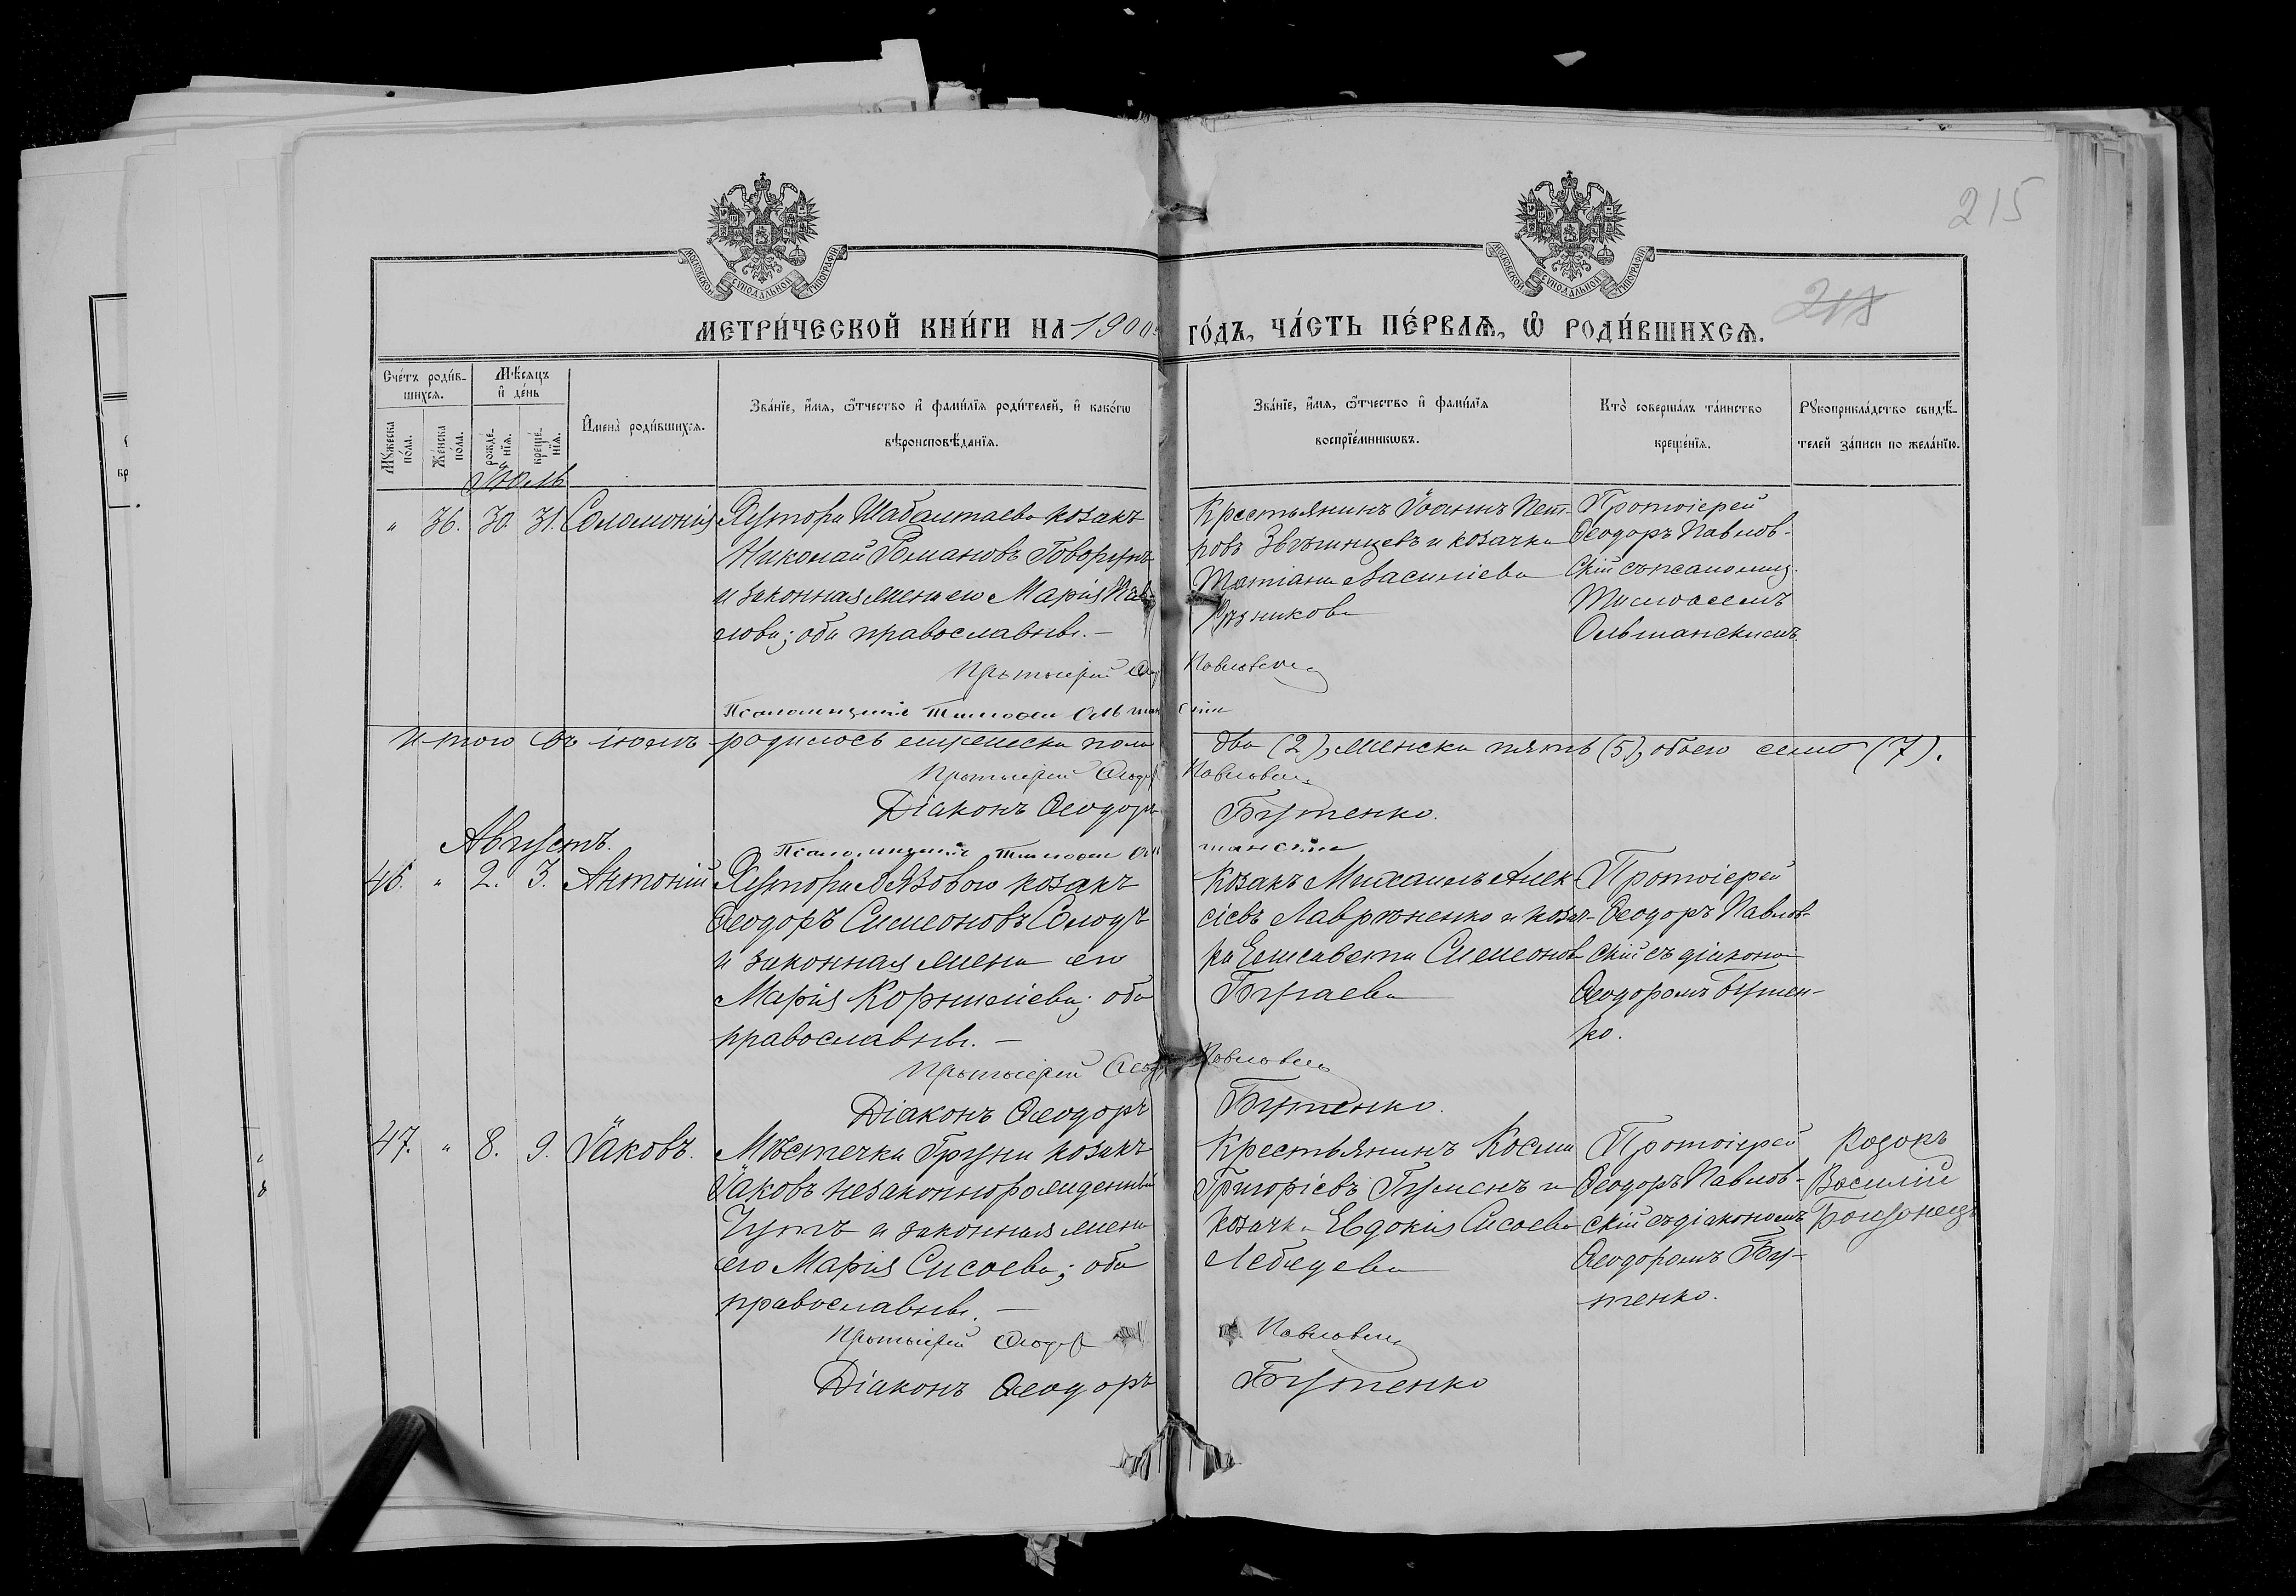 215
218
МОСКОВСКОЙ СѴНОДАЛЬНОЙ ТИПОГРАФІИ
МОСКОВСКОЙ СѴНОДАЛЬНОЙ ТИПОГРАФІИ
МЕТРИ́ЧЕСКОЙ КНИ́ГИ НА 1900й ГО́ДЪ, ЧА́СТЬ ПЕ́РВАѦ, Ѡ҆ РОДИ́ВШИХСѦ.
Сче́тъ роди́в-
шихсѧ.
Мѣ́сѧцъ
и҆ де́нь
Мꙋ́жеска по́ла.
Же́нска по́ла.
рожде́-нїѧ.
креще́-нїѧ.
И҆мена̀ роди́вшихсѧ.
Зва́нїе, и҆́мѧ, ѻ҆́тчество и҆ фами́лїѧ роди́телей, и҆ како́гѡ
вѣроисповѣ́данїѧ.
Зва́нїе, и҆́мѧ, ѻ҆́тчество и҆ фами́лїѧ
воспрїе́мникѡвъ.
Кто̀ соверша́лъ та́инство
креще́нїѧ.
Рꙋкоприкла́дство свидѣ́-
телей за́писи по жела́нїю.
Іюль
" 36. 30. 31. Соломонія
Хутора Шабалтаева козакъ
Николай Романовъ Говорунъ
и законная жена его Марія Пав-
лова; оба православные. –
Крестьянинъ Іоаннъ Пет-
ровъ Звѣшнцевъ и козачка
Татіана Василіева
Рѣзникова
Протоіерей
Ѳеодоръ Павлов-
скій съ псаломщ.
Тимоѳеемъ
Ольшанскимъ.
Протоіерей Ѳеод. Павловскій
Псаломщикъ Тимоѳей Ольшанскій
Итого въ іюлѣ родилось мужеска пола два (2), женска пять (5), обоего семь (7).
Протоіерей Ѳеодор Павловскій
Діаконъ Ѳеодоръ Бутенко.
Псаломщикъ Тимоѳей Ольшанскій
Августъ.
46. " 2. 3. Антоній
Хутора Лязового козакъ
Ѳеодоръ Симеоновъ Солодъ
и законная жена его
Марія Корниліева; оба
православные. –
Козакъ Михаилъ Алек-
сіевъ Лавриненко и козач-
ка Елисавета Симеонов.
Бугаева
Протоіерей
Ѳеодоръ Павлов-
скій съ діакономъ
Ѳеодоромъ Бутен-
ко.
Протоіерей Ѳеодор Павловскій
Діаконъ Ѳеодоръ Бутенко.
47. " 8. 9. Іаковъ.
Мѣстечка Груни козакъ
Іаковъ незаконнорожденный
Чутъ и законная жена
его Марія Сисоева; оба
православные. –
Крестьянинъ Косма
Григоріевъ Гуменъ и
козачка Евдокія Сисоева
Лебедева
Протоіерей
Ѳеодоръ Павлов-
скій съ діакономъ
Ѳеодоромъ Бу-
тенко.
Козакъ
Василій
Протоіерей Ѳеодор Павловскій
Діаконъ Ѳеодоръ Бутенко